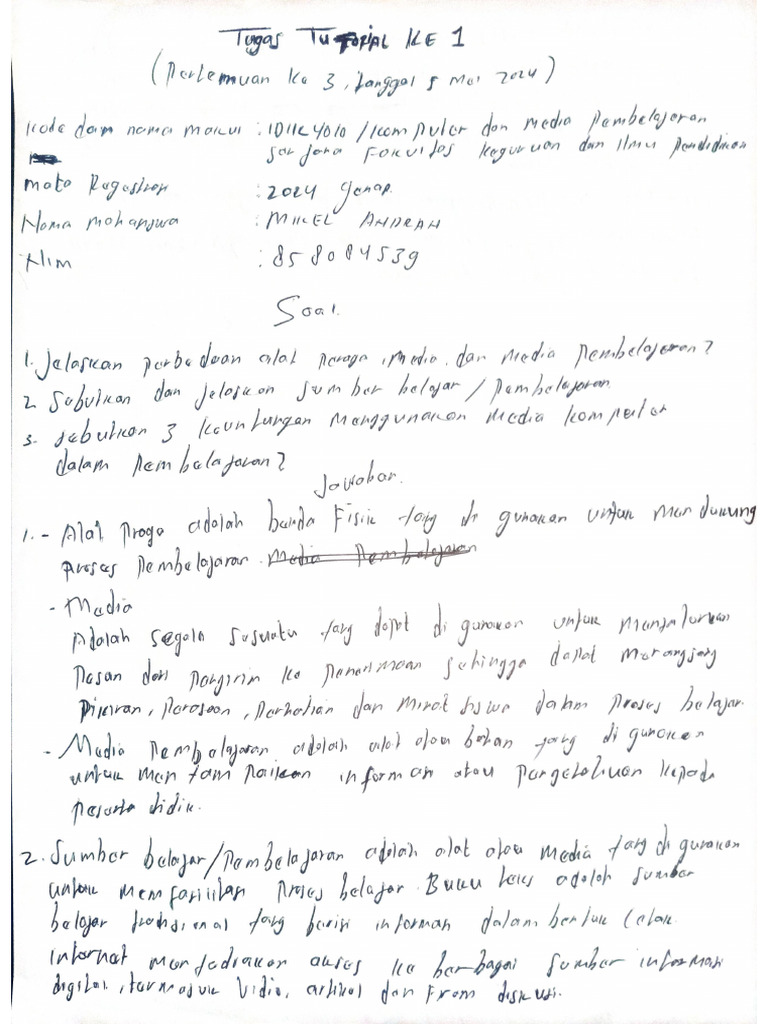 Tugas Tutorial KE 1
(Pertemuan Ke 3, tanggal 5 Mei 2024)
Kode dan nama makul : IDIK4010 / Komputer dan media Pembelajaran
Sarjana Fakultas keguruan dan Ilmu Pendidikan
mata Ragestron : 2024 Genap.
Nama mahasiswa : MIKEL ANDRAH
Nim : 858084539
Soal.
1. Jelaskan perbedaan alat peraga, media, dan media Pembelajaran?
2. Sebutkan dan jelaskan sumber belajar / Pembelajaran
3. sebutkan 3 keuntungan menggunakan media komputer
dalam Pembelajaran?
Jawaban.
1. - Alat Praga adalah benda Fisik yang di gunakan untuk mendukung
proses Pembelajaran. Media Pembelajaran
- Media
Adalah segala susuatu yang dapat di gunakan untuk menyalurkan
Pesan dari Pangirim ke Penerimaan sehingga dapat merangsang
Pikiran, Perasaan, Perhatian dan Minat siswa dalam Proses belajar.
- Media Pembelajaran adalah alat atau bahan yang di gunakan
untuk menyampaikan informasi atau pangetahuan kepada
Peserta didik.
2. Sumber belajar/Pembelajaran adalah alat atau media yang di gunakan
untuk memfasilitasi Proses belajar. Buku teks adalah sumber
belajar tradisional yang berisi informasi dalam bentuk Cetak.
internet menyediakan akses ke berbagai sumber informasi
digital, termasuk Vidio, artikel dan From diskusi.